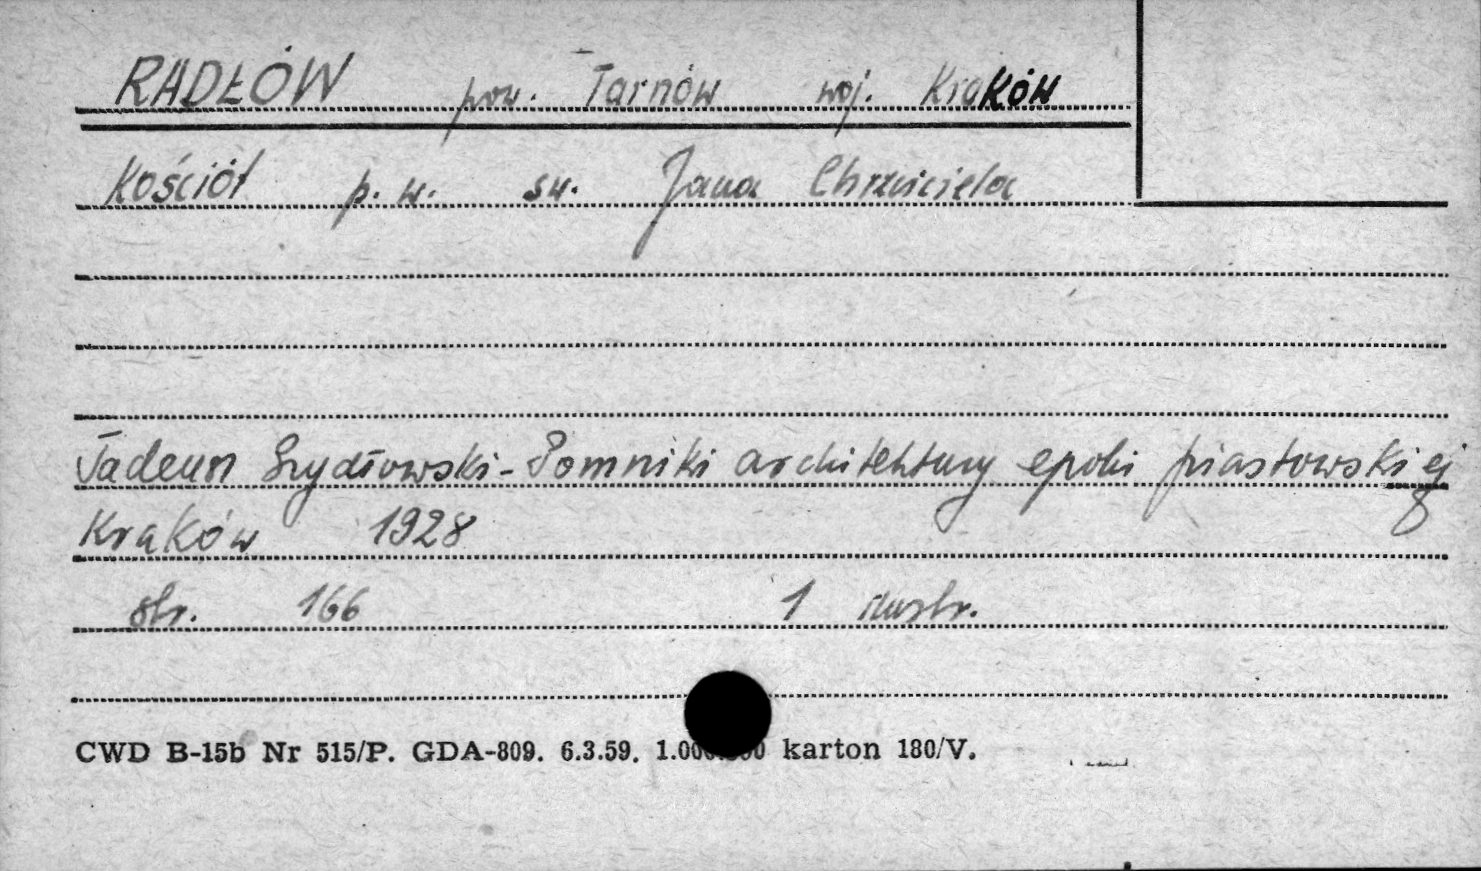 RADŁÓW pow. Tarnów woj. Kraków
Kościół p.w. św. Jana Chrzciciela
Tadeusz Szydłowski - Pomniki architektury epoki piastowskiej
Kraków 1928
str. 166 1 ilustr.
CWD B-15b Nr 515/P. GDA-809. 6.3.59. karton 180/V.